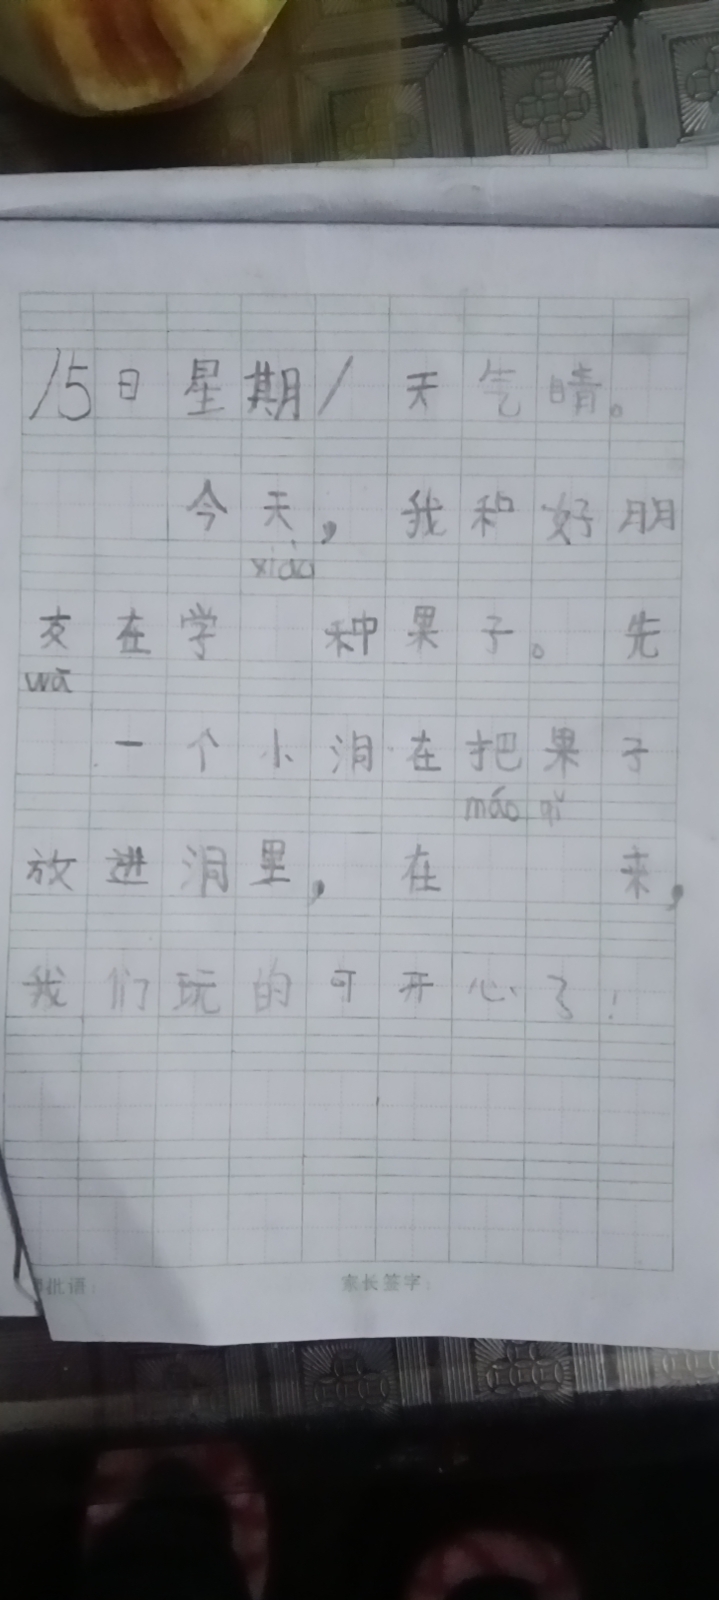 15日星期1天气晴。
今天，我和好朋
xiào
友在学 种果子。先
wā
一个小洞在把果子
máo qǐ
放进洞里，在 来，
我们玩的可开心了！
批语：
家长签字：